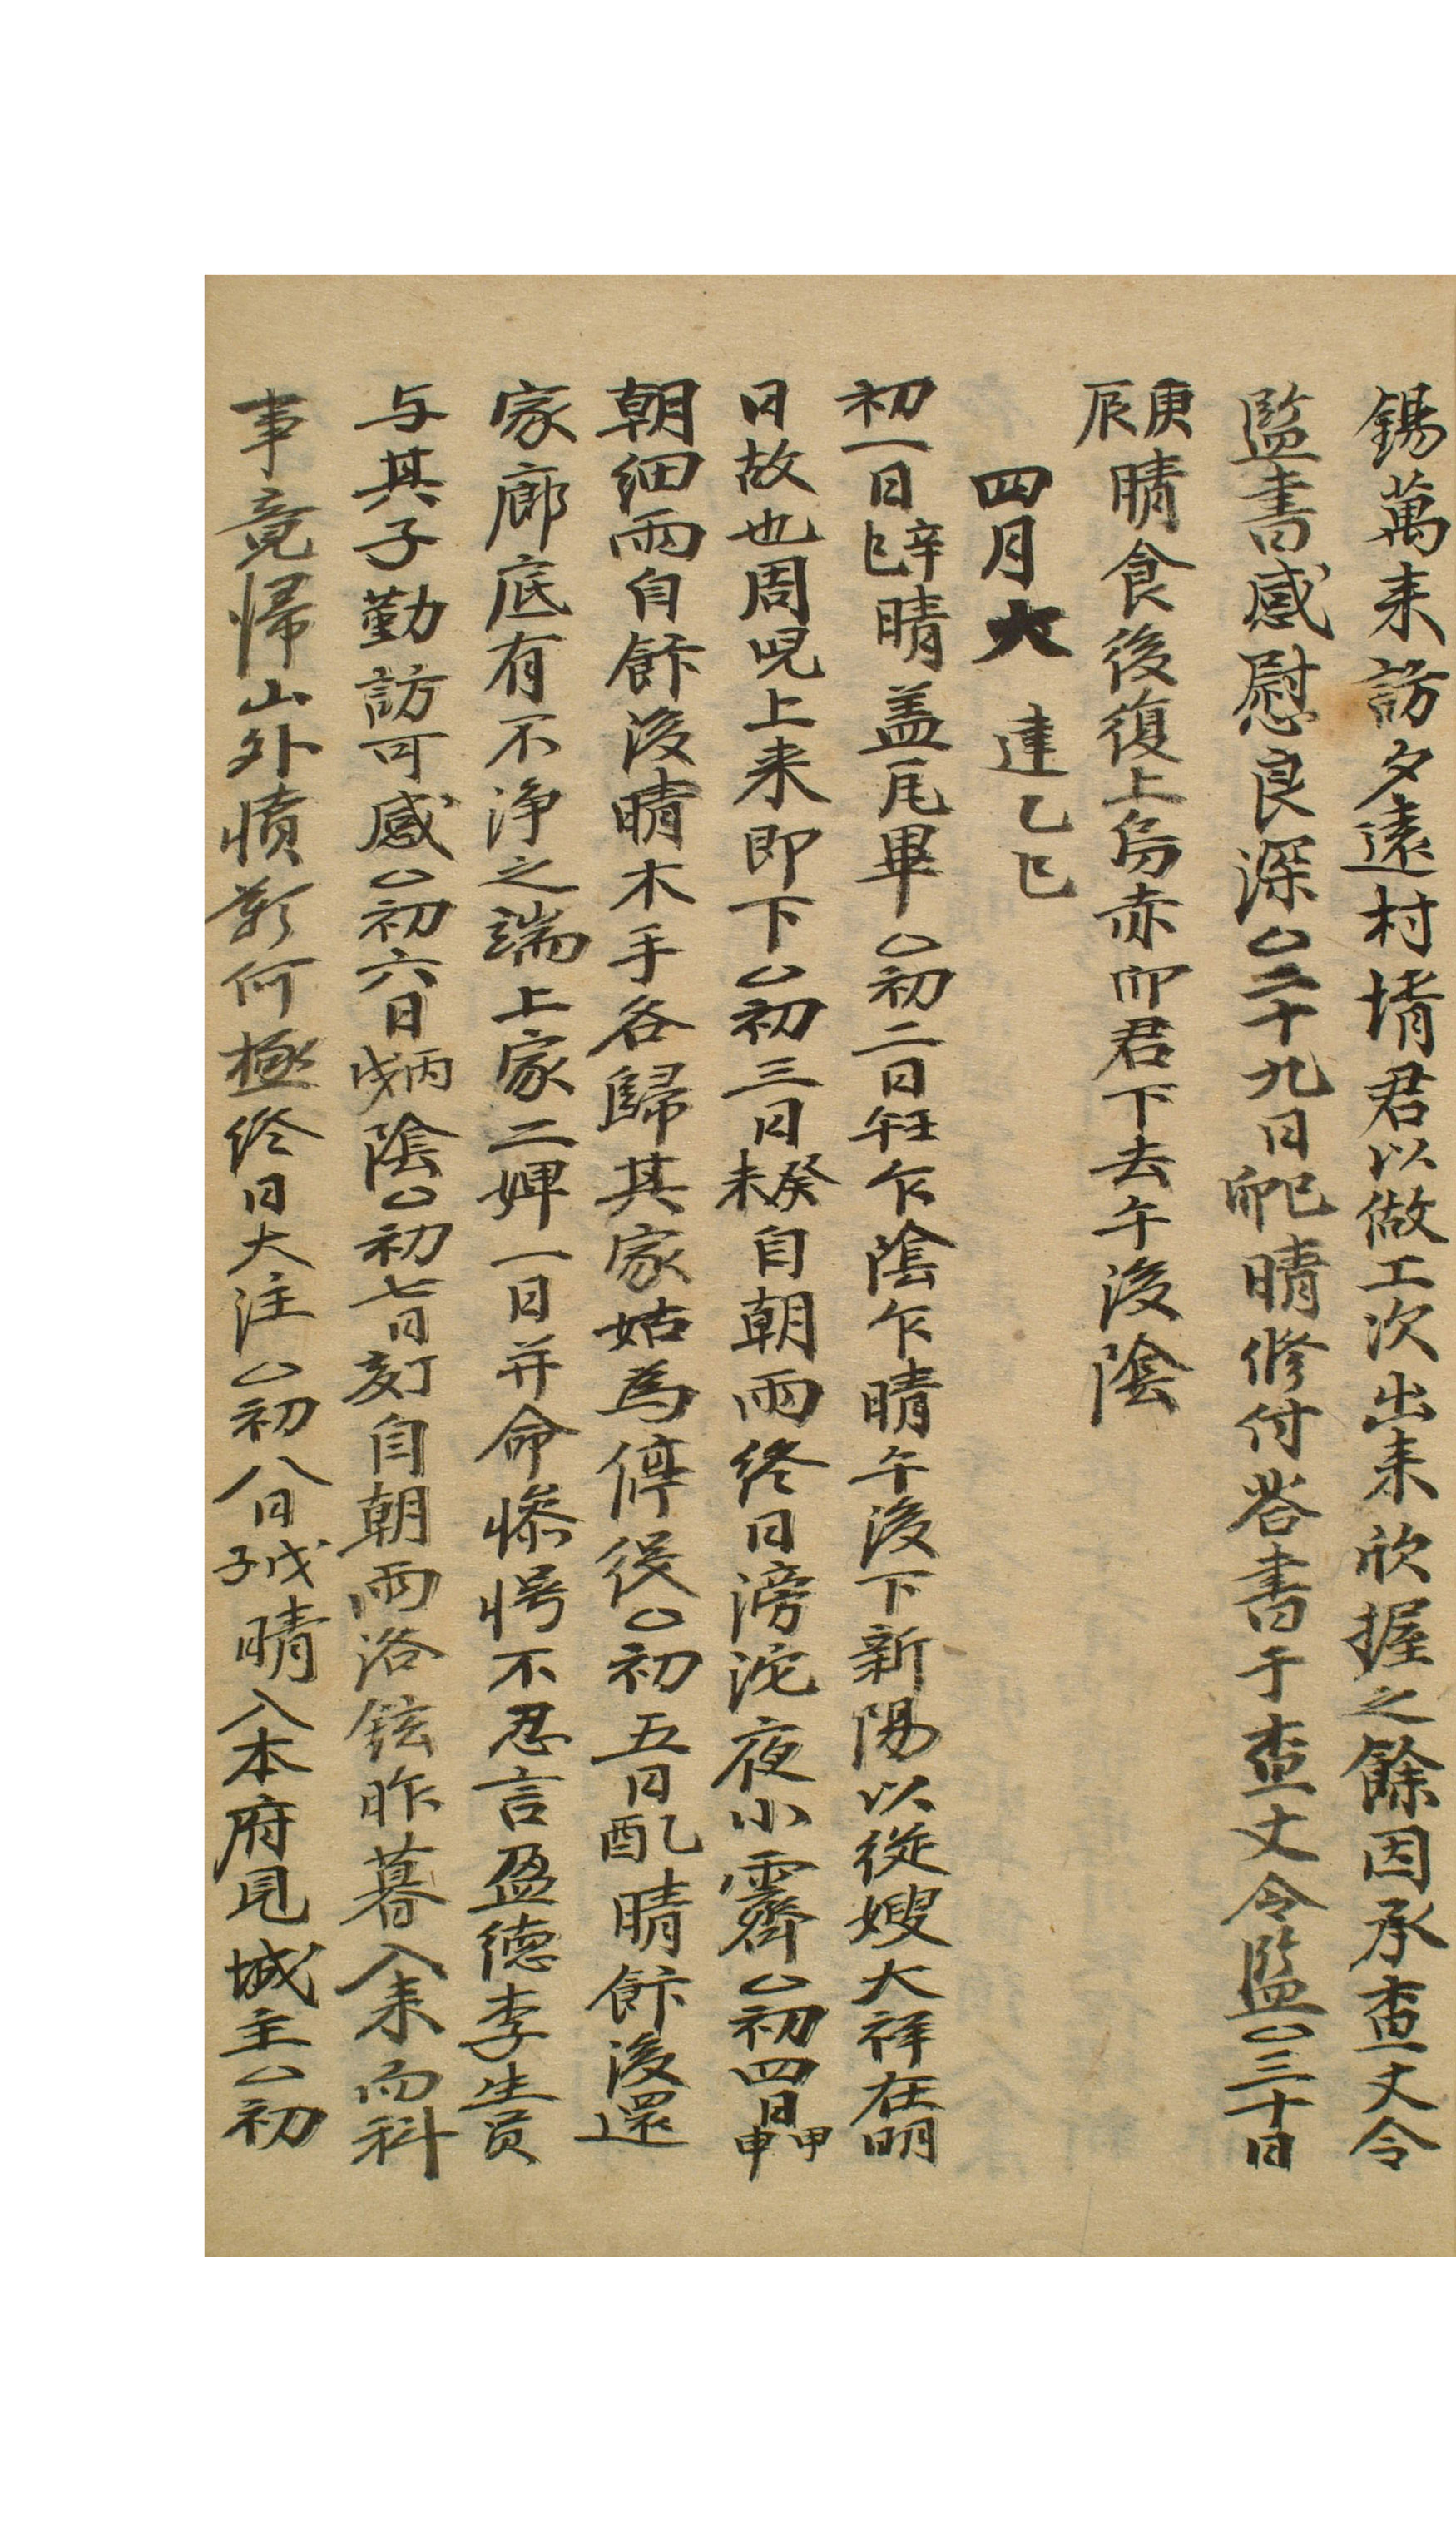 錫萬来訪夕遠村壻君以做工次出来欣握之餘因承査丈令
監書感慰良深○二十九日己卯晴修付答書于査丈令監○三十日
庚辰晴食後復上烏赤卯君下去午後陰
四月大 建乙巳
初一日辛巳晴盖瓦畢○初二日壬午乍陰乍晴午後下新陽以從嫂大祥在明
日故也周児上来即下○初三日癸未自朝雨終日滂沱夜小霽○初四日甲申
朝細雨自飰後晴木手各歸其家姑為停役○初五日乙酉晴飰後還
家廊底有不浄之端上家二婢一日并命惨愕不忍言盈徳李生員
与其子勤訪可感○初六日丙戌陰○初七日丁亥自朝雨洛鉉昨暮入来而科
事竟帰山外憤歎何極终日大注○初八日戊子晴入本府見城主○初